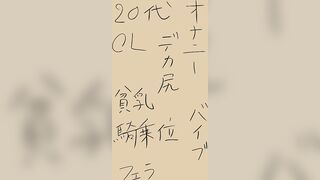 20代 オナニー
OL デカ尻
貧乳 バイブ
騎乗位
フェラ